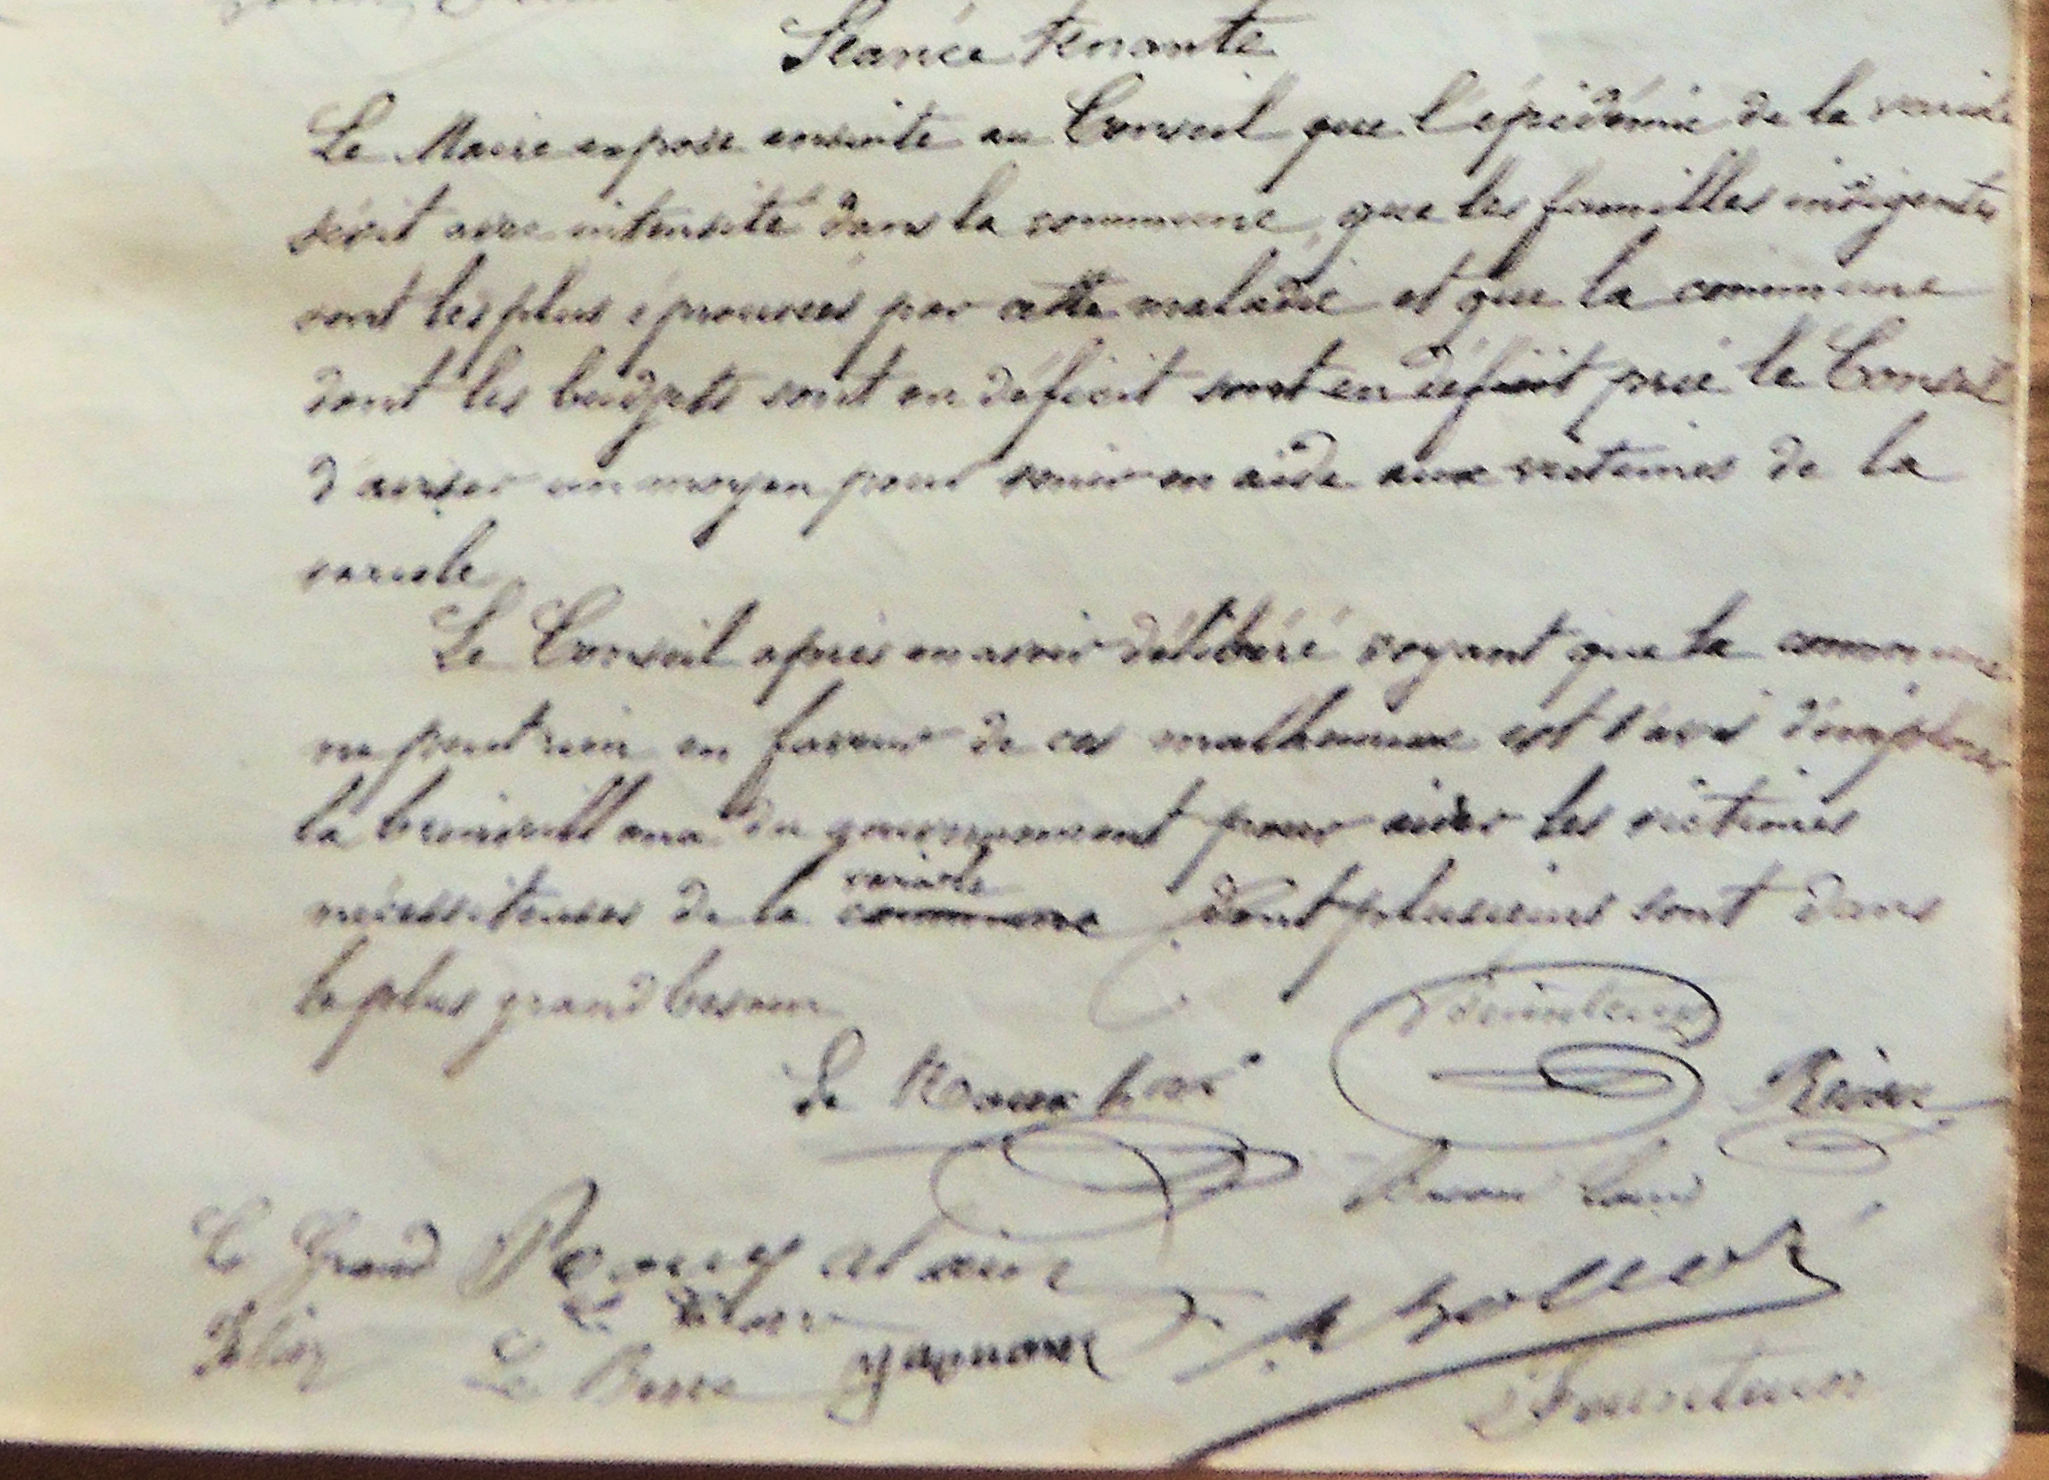 Séance tenante
Le Maire expose ensuite au Conseil que l'épidémie de la variole
sévit avec intensité dans la commune, que les familles indigentes
sont les plus éprouvées par cette maladie et que la commune
dont les budgets sont en déficit sont en déficit prie le Conseil
d'aviser un moyen pour venir en aide aux victimes de la
variole
Le Conseil après en avoir délibéré voyant que la commune
ne peut rien en faveur de ces malheureux est d'avis d'implorer
la bienveillance du gouvernement pour aider les victimes
variole
nécessiteuses de la commune dont plusieurs sont dans
le plus grand besoin
Le
Le Grand
Le
Le